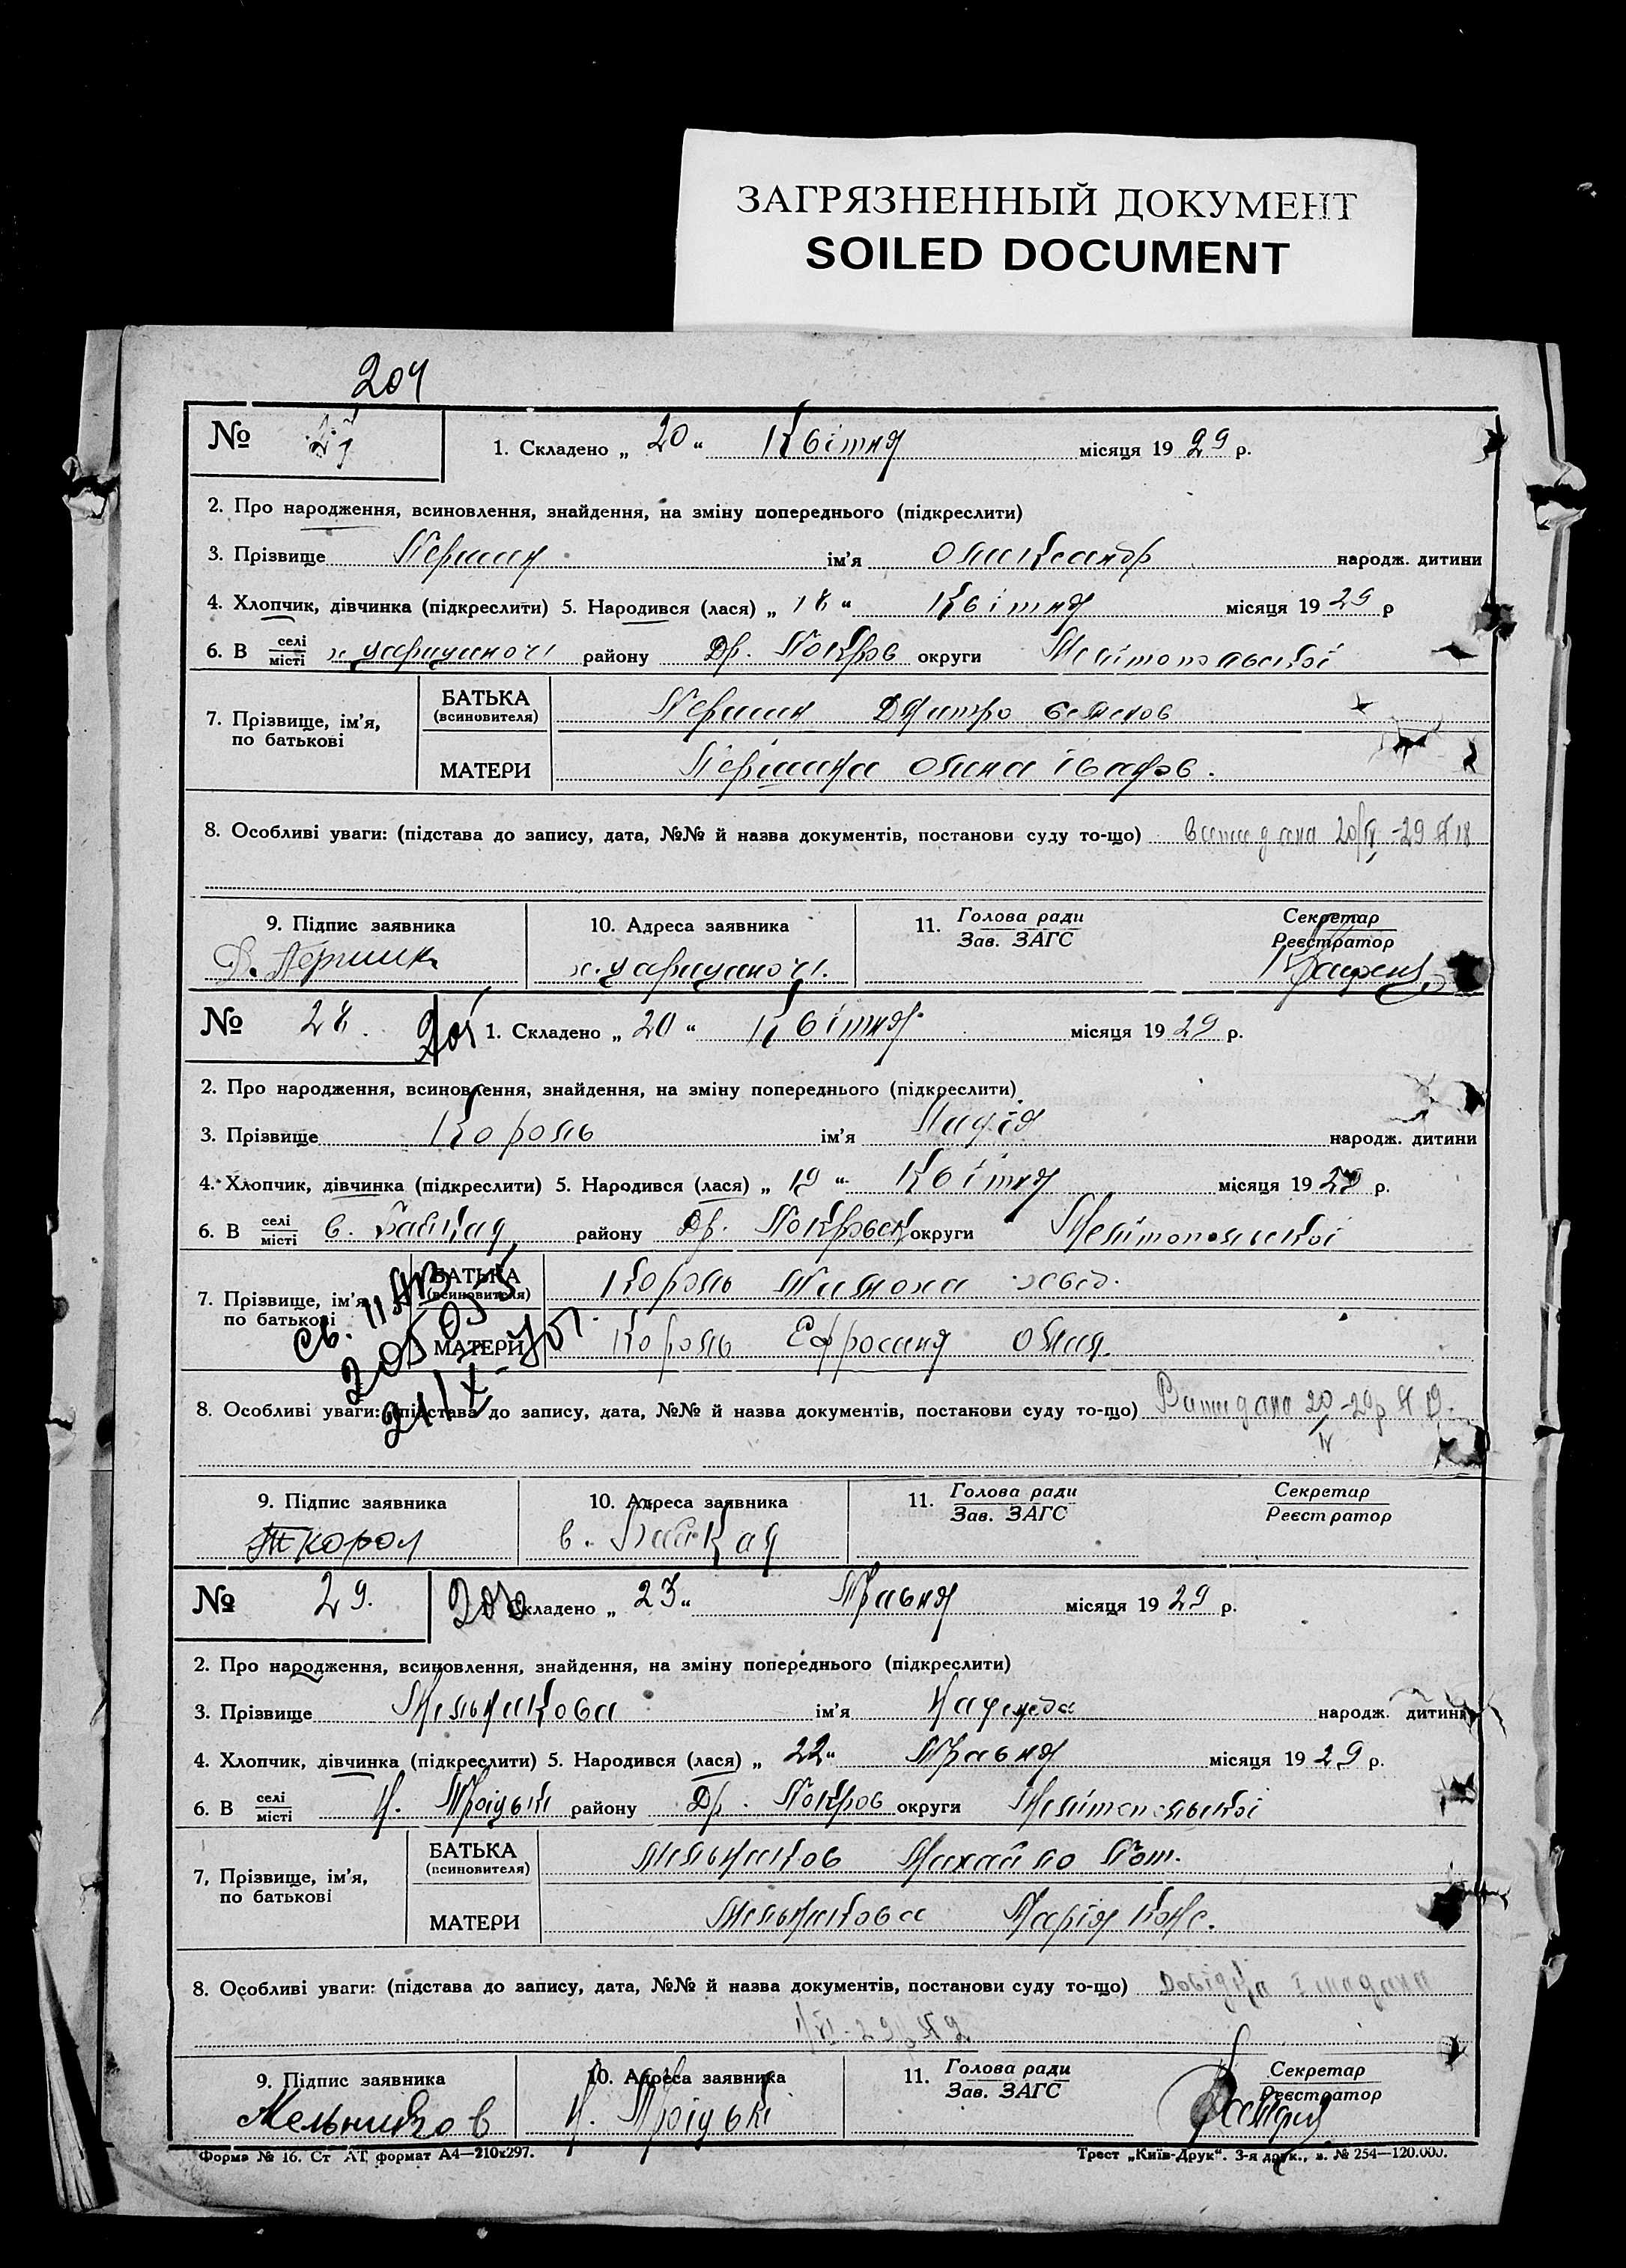 ЗАГРЯЗНЕННЫЙ ДОКУМЕНТ
SOILED DOCUMENT
204
№ 27 1. Складено „ 20 “ Квітня місяця 19 29 р.
2. Про народження, всиновлення, знайдення, на зміну попереднього (підкреслити)
3. Прізвище Першин ім’я Олександр народж. дитини
4. Хлопчик, дівчинка (підкреслити) 5. Народився (лася) „ 18 “ Квітня місяця 19 29 р
6. В селі місті х. району Др. Покров округи Мелітопольської
7. Прізвище, ім’я, по батькові
БАТЬКА (всиновителя) Першин Дмитро
МАТЕРИ Першина Олена Іванов.
8. Особливі уваги: (підстава до запису, дата, №№ й назва документів, постанови суду то-що) 20/IV-29 № 18
9. Підпис заявника 10. Адреса заявника 11. Голова ради Зав. ЗАГС Секретар Реєстратор
Д. Першин х.
№ 28. 205 1. Складено „ 20 “ Квітня місяця 19 29 р.
2. Про народження, всиновлення, знайдення, на зміну попереднього (підкреслити)
3. Прізвище Король ім’я Надія народж. дитини
4. Хлопчик, дівчинка (підкреслити) 5. Народився (лася) „ 19 “ Квітня місяця 19 29 р.
6. В селі місті в. району Др. Покровськ округи Мелітопольської
7. Прізвище, ім’я по батькові
БАТЬКА (всиновителя) Король Тимоха
МАТЕРИ Король Єфросиня
8. Особливі уваги: (підстава до запису, дата, №№ й назва документів, постанови суду то-що) 20/IV-29р № 19.
9. Підпис заявника 10. Адреса заявника 11. Голова ради Зав. ЗАГС Секретар Реєстратор
Т Корол в.
№ 29. 206 Складено „ 23 “ Травня місяця 19 29 р.
2. Про народження, всиновлення, знайдення, на зміну попереднього (підкреслити)
3. Прізвище Мельникова ім’я народж. дитини
4. Хлопчик, дівчинка (підкреслити) 5. Народився (лася) „ 22 “ Травня місяця 19 29 р.
6. В селі місті Н. Троїцьке району Др. Покров округи Мелітопольської
7, Прізвище, ім’я, по батькові
БАТЬКА (всиновителя) Мельников Михайло
МАТЕРИ Мельникова Марія
8. Особливі уваги: (підстава до запису, дата, №№ й назва документів, постанови суду то-що) Довідка
9. Підпис заявника 10. Адреса заявника 11. Голова ради Зав. ЗАГС Секретар Реєстратор
Мельников Н. Троїцьке
Форма № 16. Ст АТ, формат А4—210x297. Трест „Київ-Друк“. 3-я друк., з. № 254—120.000.